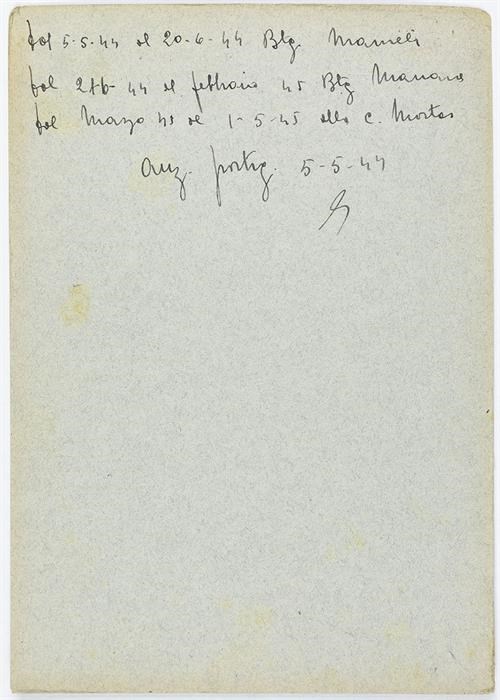 dal 5-5-44 al 20-6-44 Btg. Mameli
dal 21-6-44 al febbraio 45 Btg Manara
dal Marzo 45 al 1-5-45 alla C. Mortai
Anz. partig. 5-5-44